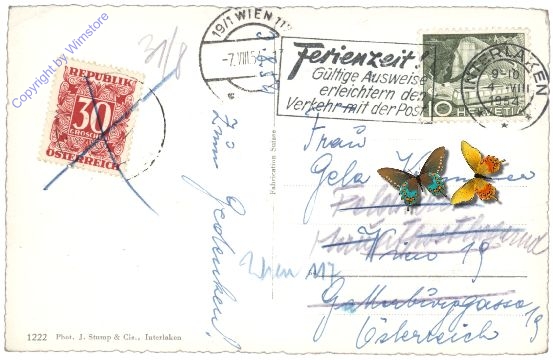 Copyright by Wimstore
31/8
19/1 WIEN 117
-7. VIII 54
REPUBLIK
30
GROSCHEN
ÖSTERREICH
Ferienzeit!
Gültige Ausweise
erleichtern den
Verkehr mit der Post
INTERLAKEN
9-10
4. VIII
1954
10 HELVETIA
Zum Gedenken!
Fabrikation Suisse
Frau
Gela
Wien 19
Wien 117
Österreich
19
1222 Phot. J. Stump & Cie., Interlaken